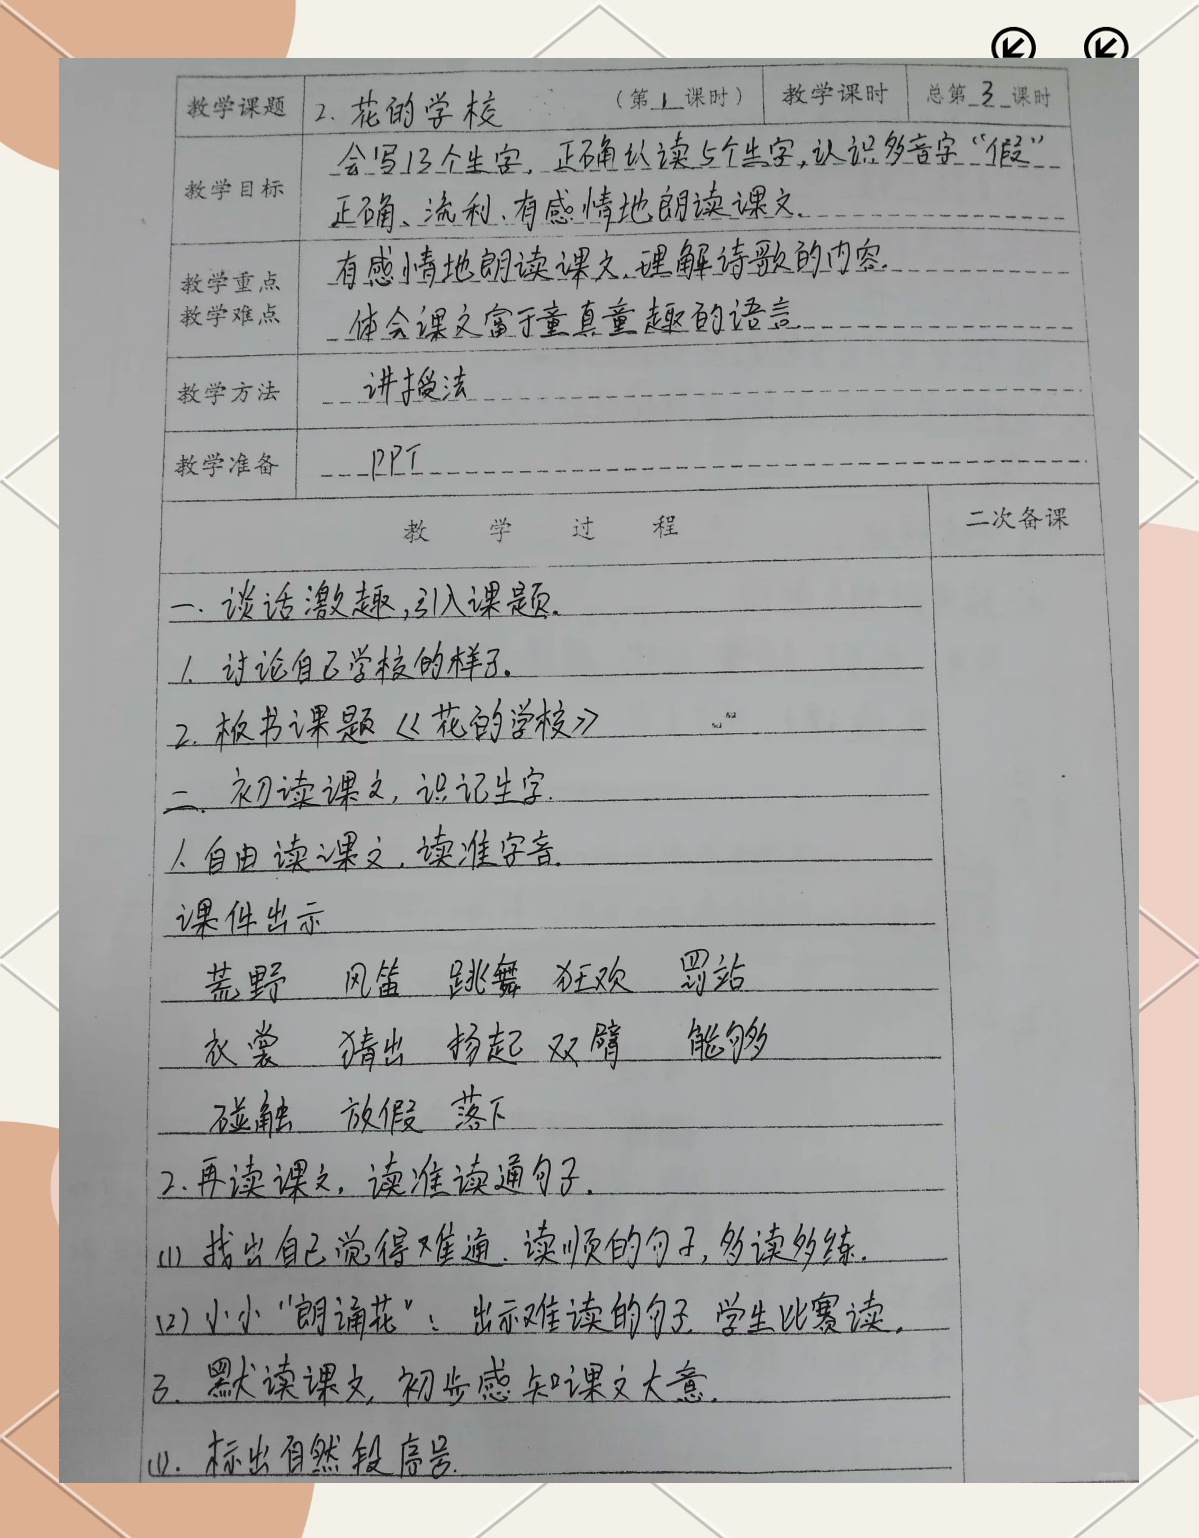 教学课题 2. 花的学校 (第1课时) 教学课时 总第3课时
教学目标 会写13个生字，正确认读5个生字，认识多音字“假”
正确、流利、有感情地朗读课文。
教学重点 有感情地朗读课文，理解诗歌的内容。
教学难点 体会课文富于童真童趣的语言
教学方法 讲授法
教学准备 PPT
教 学 过 程 二次备课
一. 谈话激趣，引入课题。
1. 讨论自己学校的样子。
2. 板书课题《花的学校》
二. 初读课文，识记生字.
1. 自由读课文，读准字音.
课件出示
荒野 风笛 跳舞 狂欢 罚站
衣裳 猜出 扬起 双臂 能够
碰触 放假 落下
2. 再读课文，读准读通句子.
(1) 找出自己觉得难通、读顺的句子，多读多练.
(2) 小小“朗诵花”：出示难读的句子. 学生比赛读.
3. 默读课文，初步感知课文大意.
(1). 标出自然段序号.